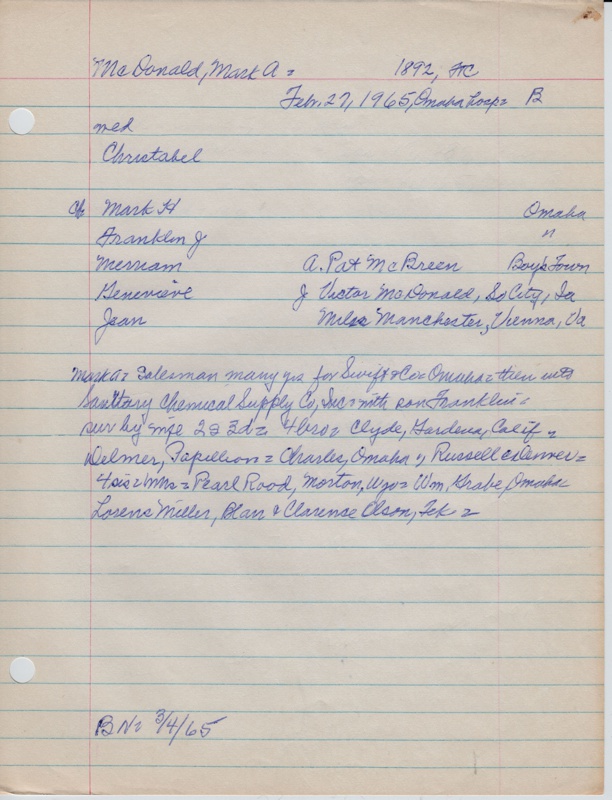 McDonald, Mark A = 1892, TC
Feb. 27, 1965, Omaha hosp = B
med
Christabel
Ch Mark H Omaha
Franklin J "
Merriam A. Pat McBreen Boys Town
Genevieve J Victor McDonald, So City, Ia
Jean Milse Manchester, Vienna, Va
Mark A = Salesman many yrs for Swift & Co = Omaha = then into
Sanitary Chemical Supply Co, Inc = with son Franklin =
sur by wife 2s 3d = 4 bro = Clyde, Gardena, Calif =
Delmer, Papillion = Charles, Omaha ", Russell Denver =
4 sis = Mrs = Pearl Rood, Morton, Wyo = Wm, Grabe, Omaha =
Lorens Miller, Blair & Clarence Olson, Tek =
BN = 3/4/65